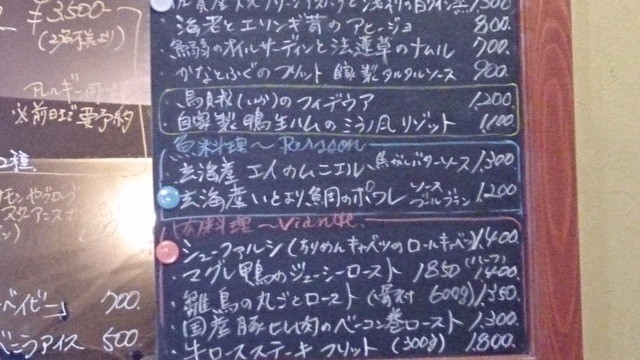 ¥3,500-
(2名様より)
アレルギー
※前日まで要予約
2種
700.
バニラアイス 500.
1,300
海老とエリンギ茸のアヒージョ 800.
のオイルサーディンと法蓮草のナムル 700.
かなとふぐのフリット 自家製タルタルソース 900.
烏賊(いか)のフィデウア 1,200
自家製鴨生ハムのミラノ風リゾット 1,100.
魚料理〜Poisson
玄海産 エイのムニエル、焦がしバターソース 1,300
玄海産いとより鯛のポワレ ソースブールブラン 1,200
肉料理〜Viande
シューファルシ(ちりめんキャベツのロールキャベツ) 1,400
マグレ鴨のジューシーロースト 1850 (ハーフ) 1,400
雛鳥の丸ごとロースト (骨付 600g) 1,350
国産豚ヒレ肉のベーコン巻ロースト 1,300
牛ロースステーキ フリット (300g) 1,800